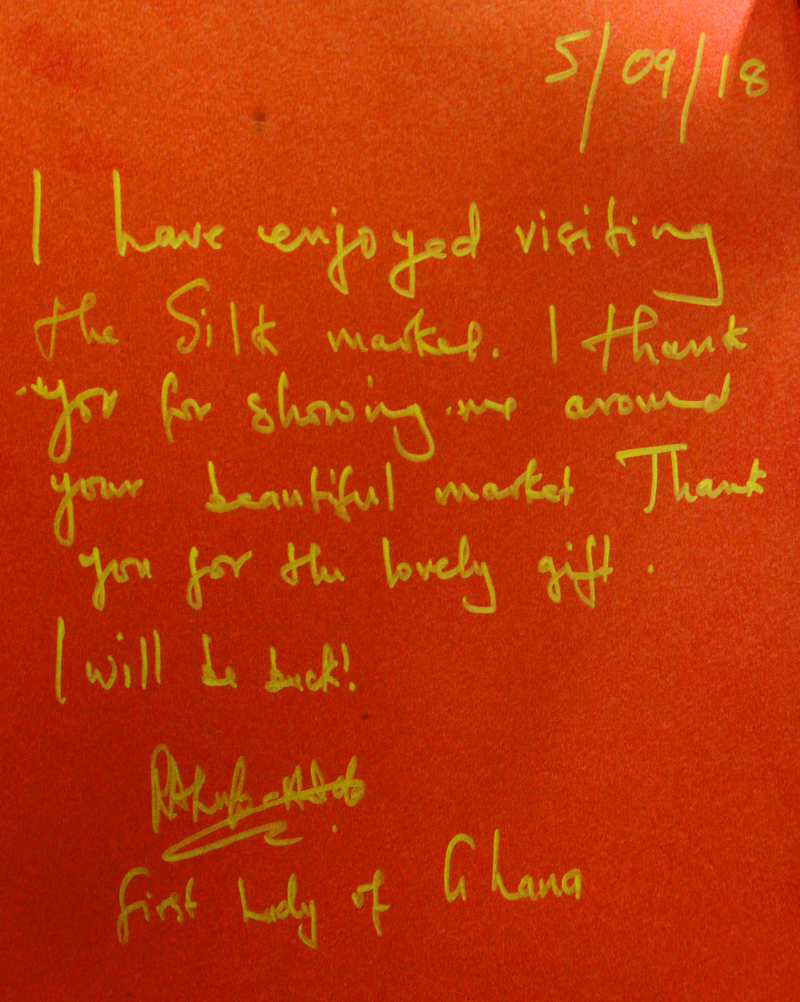 5/09/18
I have enjoyed visiting
the Silk market. I thank
you for showing me around
your beautiful market Thank
you for the lovely gift.
I will be back!
RAkufo-Addo
First Lady of Ghana